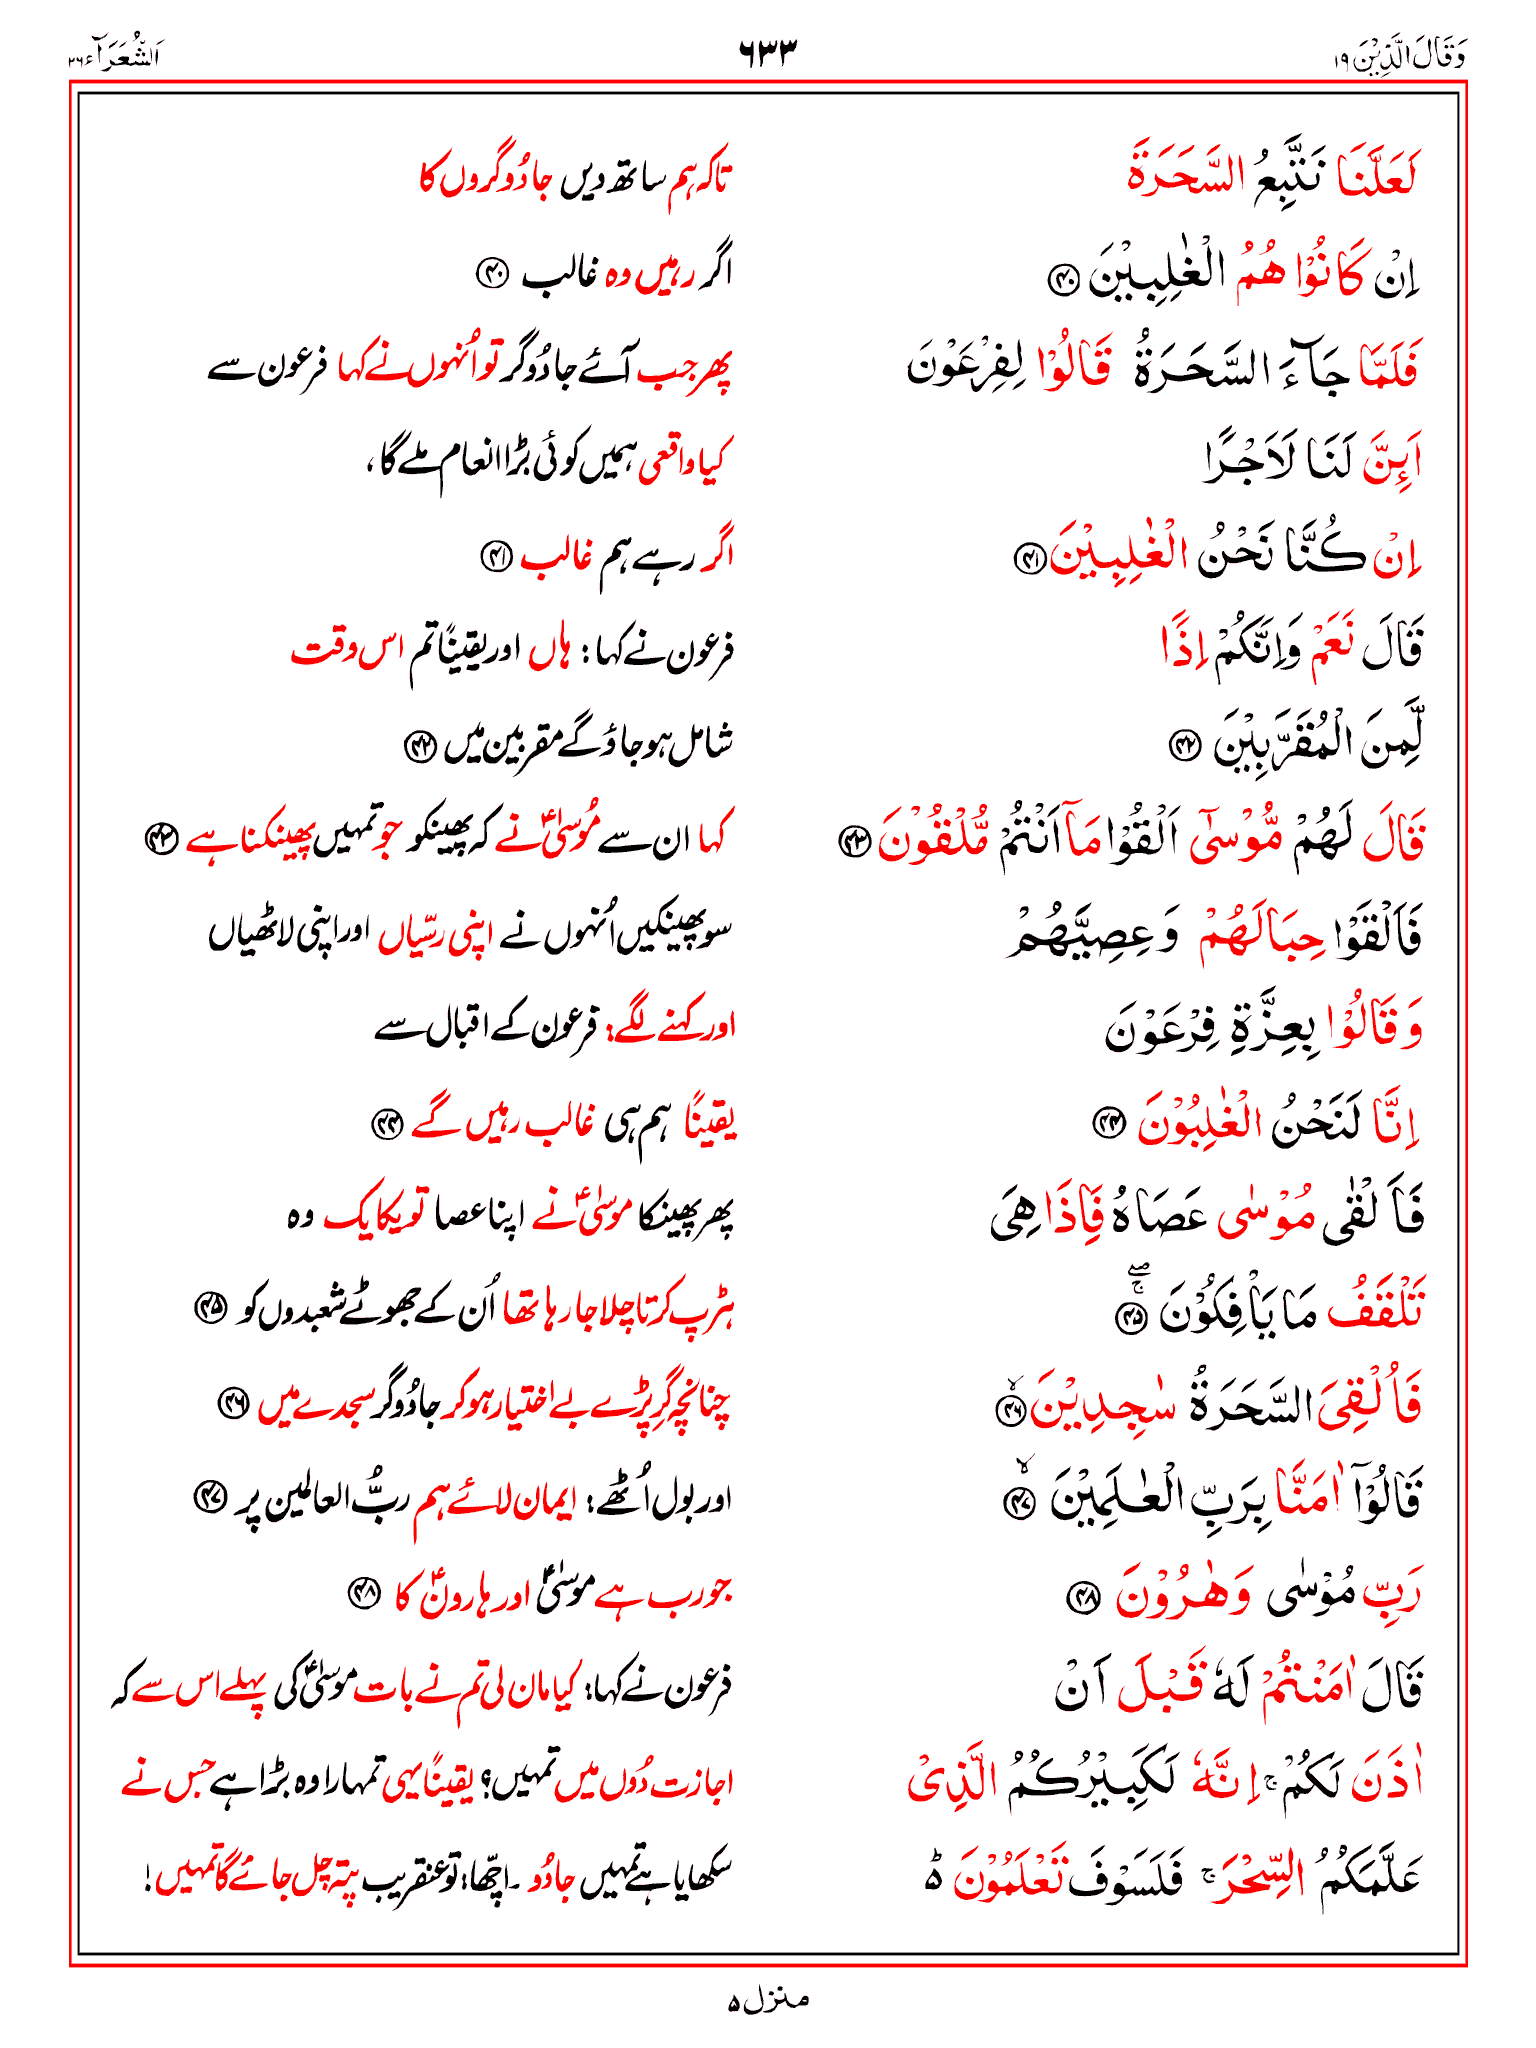 وَقَالَ الَّذِیْنَ ١٩
٦٣٣
اَلشُّعَرَآء ٢٦
لَعَلَّنَا نَتَّبِعُ السَّحَرَةَ
تاکہ ہم ساتھ دیں جادُوگروں کا
اِنْ كَانُوْا هُمُ الْغٰلِبِیْنَ ﴿۴۰﴾
اگر رہیں وہ غالب ﴿۴۰﴾
فَلَمَّا جَآءَ السَّحَرَةُ قَالُوْا لِفِرْعَوْنَ
پھر جب آئے جادُوگر تو اُنہوں نے کہا فرعون سے
اَئِنَّ لَنَا لَاَجْرًا
کیا واقعی ہمیں کوئی بڑا انعام ملے گا،
اِنْ كُنَّا نَحْنُ الْغٰلِبِیْنَ ﴿۴۱﴾
اگر رہے ہم غالب ﴿۴۱﴾
قَالَ نَعَمْ وَاِنَّكُمْ اِذًا
فرعون نے کہا: ہاں اور یقینًا تم اس وقت
لَّمِنَ الْمُقَرَّبِیْنَ ﴿۴۲﴾
شامل ہو جاؤ گے مقربین میں ﴿۴۲﴾
قَالَ لَهُمْ مُّوْسٰۤی اَلْقُوْا مَاۤ اَنْتُمْ مُّلْقُوْنَ ﴿۴۳﴾
کہا ان سے مُوسیٰؑ نے کہ پھینکو جو تمہیں پھینکنا ہے ﴿۴۳﴾
فَاَلْقَوْا حِبَالَهُمْ وَعِصِیَّهُمْ
سو پھینکیں اُنہوں نے اپنی رسّیاں اور اپنی لاٹھیاں
وَقَالُوْا بِعِزَّةِ فِرْعَوْنَ
اور کہنے لگے: فرعون کے اقبال سے
اِنَّا لَنَحْنُ الْغٰلِبُوْنَ ﴿۴۴﴾
یقینًا ہم ہی غالب رہیں گے ﴿۴۴﴾
فَاَلْقٰی مُوْسٰی عَصَاهُ فَاِذَا هِیَ
پھر پھینکا موسیٰؑ نے اپنا عصا تو یکایک وہ
تَلْقَفُ مَا یَاْفِكُوْنَ ﴿۴۵﴾ۚۖ
ہڑپ کرتا چلا جا رہا تھا اُن کے جھوٹے شعبدوں کو ﴿۴۵﴾
فَاُلْقِیَ السَّحَرَةُ سٰجِدِیْنَ ﴿۴۶﴾ۙ
چنانچہ گِر پڑے بے اختیار ہو کر جادُوگر سجدے میں ﴿۴۶﴾
قَالُوْۤا اٰمَنَّا بِرَبِّ الْعٰلَمِیْنَ ﴿۴۷﴾ۙ
اور بول اُٹھے: ایمان لائے ہم ربُّ العالمین پر ﴿۴۷﴾
رَبِّ مُوْسٰی وَهٰرُوْنَ ﴿۴۸﴾
جو رب ہے موسیٰؑ اور ہارونؑ کا ﴿۴۸﴾
قَالَ اٰمَنْتُمْ لَهٗ قَبْلَ اَنْ
فرعون نے کہا: کیا مان لی تم نے بات موسیٰؑ کی پہلے اس سے کہ
اٰذَنَ لَكُمْ ۚ اِنَّهٗ لَكَبِیْرُكُمُ الَّذِیْ
اجازت دُوں میں تمہیں؟ یقینًا یہی تمہارا وہ بڑا ہے جس نے
عَلَّمَكُمُ السِّحْرَ ۚ فَلَسَوْفَ تَعْلَمُوْنَ ؕ
سکھایا ہے تمہیں جادُو۔ اچّھا: تو عنقریب پتہ چل جائے گا تمہیں!
منزل ۵